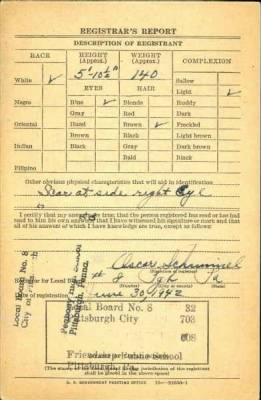 REGISTRAR'S REPORT
DESCRIPTION OF REGISTRANT
RACE HEIGHT (Approx.) WEIGHT (Approx.) COMPLEXION
5' 10½" 140
White ✓ Sallow
EYES HAIR Light ✓
Negro Blue ✓ Blonde Ruddy
Gray Red Dark
Oriental Hazel Brown ✓ Freckled
Brown Black Light brown
Indian Black Gray Dark brown
Bald Black
Filipino
Other obvious physical characteristics that will aid in identification
Scar at side right Eye
I certify that my answers are true; that the person registered has read or has had read to him his own answers; that I have witnessed his signature or mark and that all of his answers of which I have knowledge are true, except as follows:
Local Board No. 8
Peabody High School
Pittsburgh, Penna.
Oscar
Registrar for Local Board 8 Pgh Pa
Date of registration June 30, 1942
Local Board No. 8 32
Pittsburgh City 703
008
Friendship Public School
Pittsburgh, Pa.
(The stamp of the Local Board having jurisdiction of the registrant shall be placed in the above space)
U. S. GOVERNMENT PRINTING OFFICE